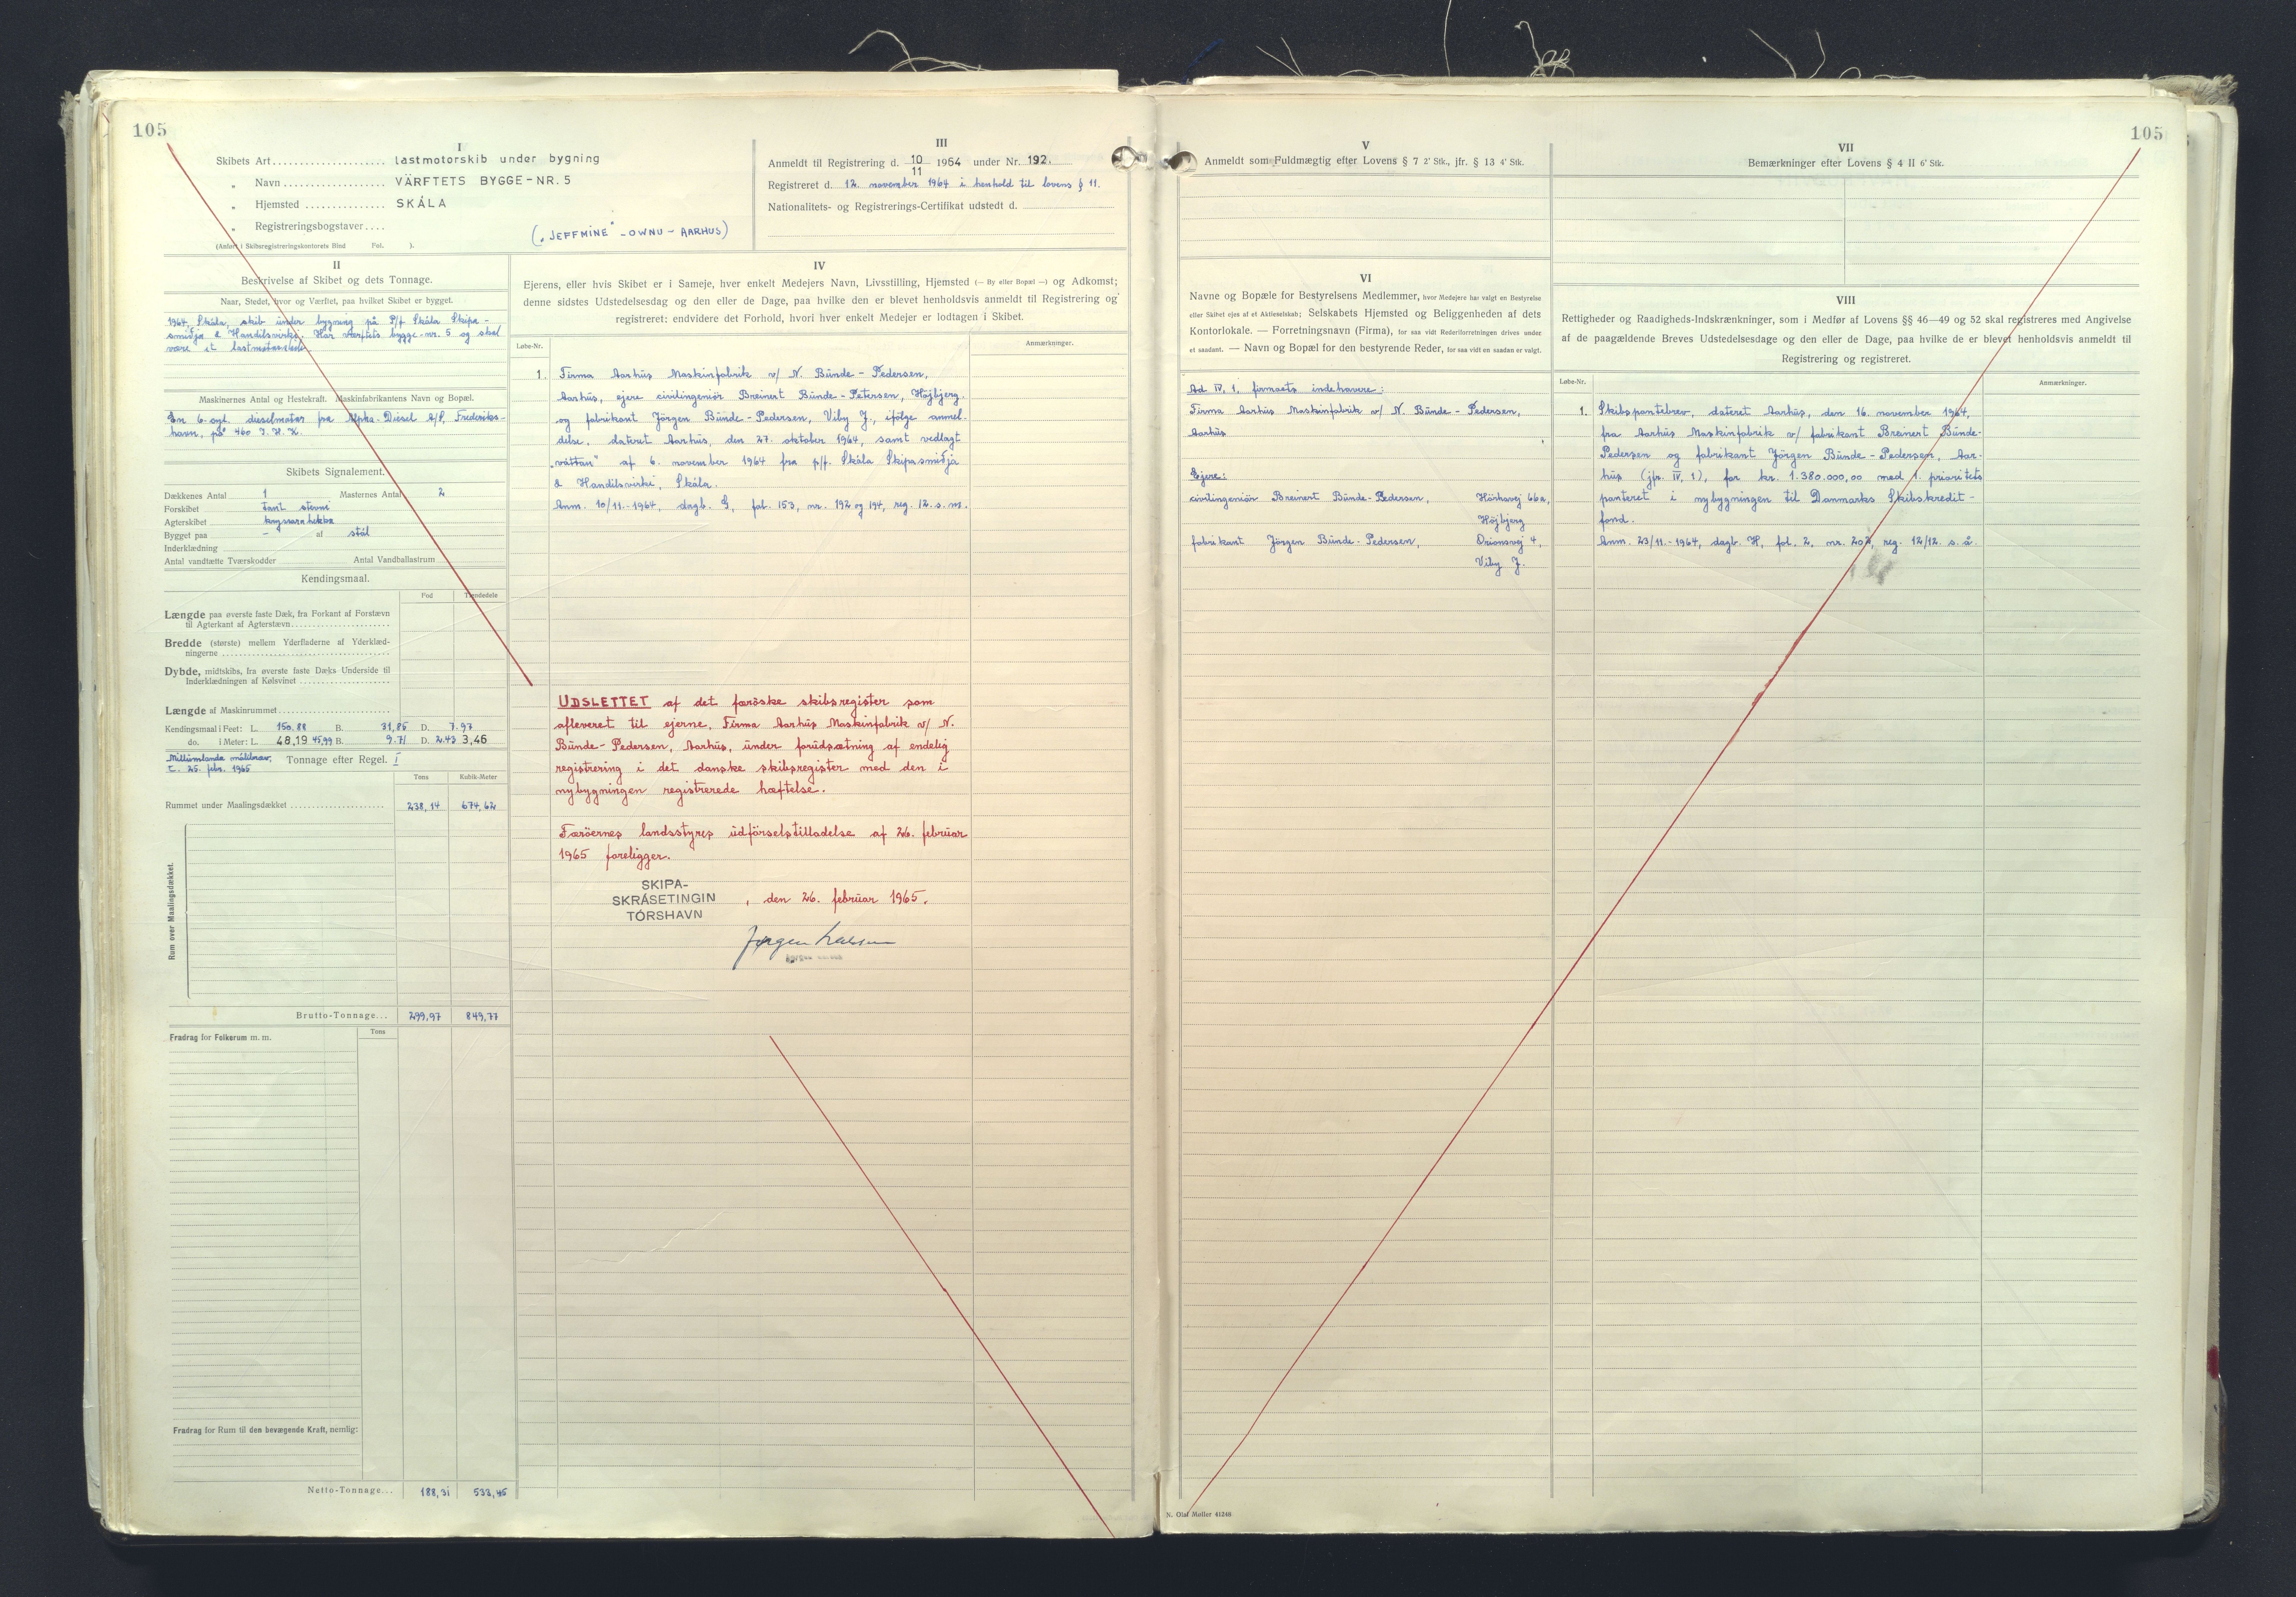 105
I
Skibets Art.................... lastmotorskib under bygning
„ Navn.................. VÄRFTETS BYGGE-NR. 5
„ Hjemsted............... SKÁLA
„ Registreringsbogstaver....
(Anført i Skibsregistreringskontorets Bind Fol. ).
(„JEFFMINE" - OWNU - AARHUS)
III
Anmeldt til Registrering d. 10/11 1964 under Nr. 192.
Registreret d. 12. november 1964 i henhold til lovens § 11.
Nationalitets- og Registrerings-Certifikat udstedt d.
II
Beskrivelse af Skibet og dets Tonnage.
Naar, Stedet, hvor og Værftet, paa hvilket Skibet er bygget.
1964, Skála, skib under bygning på P/f Skála Skipa-
smiðja & Handilsvirki. Har værftets bygge-nr. 5 og skal
være et lastmotorskib
Maskinernes Antal og Hestekraft. Maskinfabrikantens Navn og Bopæl.
En 6-cyl. dieselmotor fra Alpha-Diesel A/S, Frederiks-
havn, på 460 I.H.K.
Skibets Signalement.
Dækkenes Antal 1 Masternes Antal 2
Forskibet fant stevni
Agterskibet kryssarahekka
Bygget paa - af stål
Inderklædning
Antal vandtætte Tværskodder Antal Vandballastrum
Kendingsmaal.
Fod Tiendedele
Længde paa øverste faste Dæk, fra Forkant af Forstævn
til Agterkant af Agterstævn
Bredde (største) mellem Yderfladerne af Yderklæd-
ningerne
Dybde, midtskibs, fra øverste faste Dæks Underside til
Inderklædningen af Kølsvinet
Længde af Maskinrummet
Kendingsmaal i Feet: L. 150,88 B. 31,85 D. 7.97
do. i Meter: L. 48,19 45,99 B. 9.71 D. 2.43 3,46
Millumlanda málibræv,
25. febr. 1965
Tonnage efter Regel. I
Tons Kubik-Meter
Rummet under Maalingsdækket 238,14 674,62
Rum over Maalingsdækket.
Brutto-Tonnage... 299,97 849,77
Tons
Fradrag for Folkerum m. m.
Fradrag for Rum til den bevægende Kraft, nemlig:
Netto-Tonnage... 188,31 533,45
IV
Ejerens, eller hvis Skibet er i Sameje, hver enkelt Medejers Navn, Livsstilling, Hjemsted (— By eller Bopæl —) og Adkomst;
denne sidstes Udstedelsesdag og den eller de Dage, paa hvilke den er blevet henholdsvis anmeldt til Registrering og
registreret; endvidere det Forhold, hvori hver enkelt Medejer er lodtagen i Skibet.
Løbe-Nr. Anmærkninger.
1. Firma Aarhus Maskinfabrik v/ N. Bünde-Pedersen,
Aarhus, ejere civilingeniör Breinert Bünde-Petersen, Höjbjerg.
og fabrikant Jörgen Bünde-Pedersen, Viby J., ifölge anmel-
delse, dateret Aarhus, den 27. oktober 1964, samt vedlagt
„váttan" af 6. november 1964 fra p/f. Skála Skipasmiðja
& Handilsvirki, Skála.
Anm. 10/11-1964, dagb. G, fol. 153, nr. 192 og 194, reg. 12. s. m.
UDSLETTET af det færöske skibsregister som
afleveret til ejerne, Firma Aarhus Maskinfabrik v/ N.
Bünde-Pedersen, Aarhus, under forudsætning af endelig
registrering i det danske skibsregister med den i
nybygningen registrerede hæftelse.
Færöernes landsstyres udförselstilladelse af 26. februar
1965 foreligger.
SKIPA-
SKRÁSETINGIN
TÓRSHAVN
, den 26. februar 1965.
V
Anmeldt som Fuldmægtig efter Lovens § 7 2' Stk., jfr. § 13 4' Stk.
VI
Navne og Bopæle for Bestyrelsens Medlemmer, hvor Medejere har valgt en Bestyrelse
eller Skibet ejes af et Aktieselskab; Selskabets Hjemsted og Beliggenheden af dets
Kontorlokale. — Forretningsnavn (Firma), for saa vidt Rederiforretningen drives under
et saadant. — Navn og Bopæl for den bestyrende Reder, for saa vidt en saadan er valgt.
Ad IV, 1. firmaets indehavere:
Firma Aarhus Maskinfabrik v/ N. Bünde-Pedersen,
Aarhus
Ejere:
civilingeniör Breinert Bünde-Pedersen, Hörhavej 66a,
Höjbjerg
fabrikant Jörgen Bünde-Pedersen, Orionsvej 4,
Viby J.
VII
Bemærkninger efter Lovens § 4 II 6' Stk.
VIII
Rettigheder og Raadigheds-Indskrænkninger, som i Medfør af Lovens §§ 46—49 og 52 skal registreres med Angivelse
af de paagældende Breves Udstedelsesdage og den eller de Dage, paa hvilke de er blevet henholdsvis anmeldt til
Registrering og registreret.
Løbe-Nr. Anmærkninger.
1. Skibspantebrev, dateret Aarhus, den 16. november 1964,
fra Aarhus Maskinfabrik v/ fabrikant Breinert Bünde-
Pedersen og fabrikant Jörgen Bünde-Pedersen, Aar-
hus (jfr. IV, 1), for kr. 1.380.000,00 med 1. prioritets
panteret i nybygningen til Danmarks Skibskredit-
fond.
Anm. 23/11-1964, dagb. H, fol. 2, nr. 202, reg. 12/12. s. å.
105
N. Olaf Møller 41248